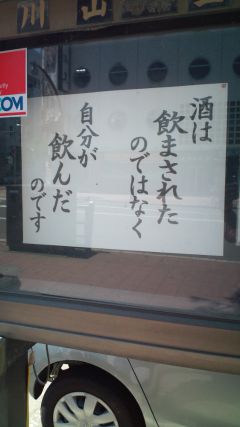 川山
酒は
飲まされた
のではなく
自分が
飲んだ
のです
COM